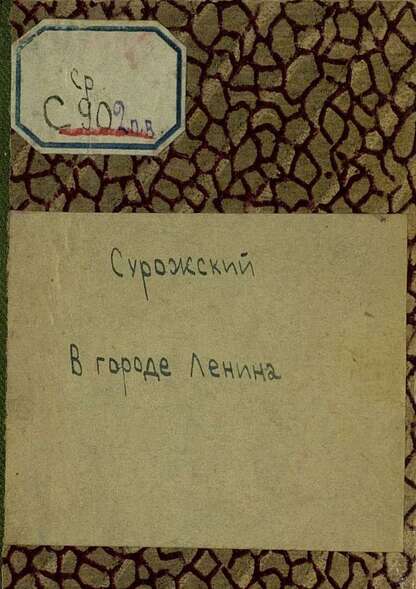 Ср
С 902 п.в.
Сурожский
В городе Ленина